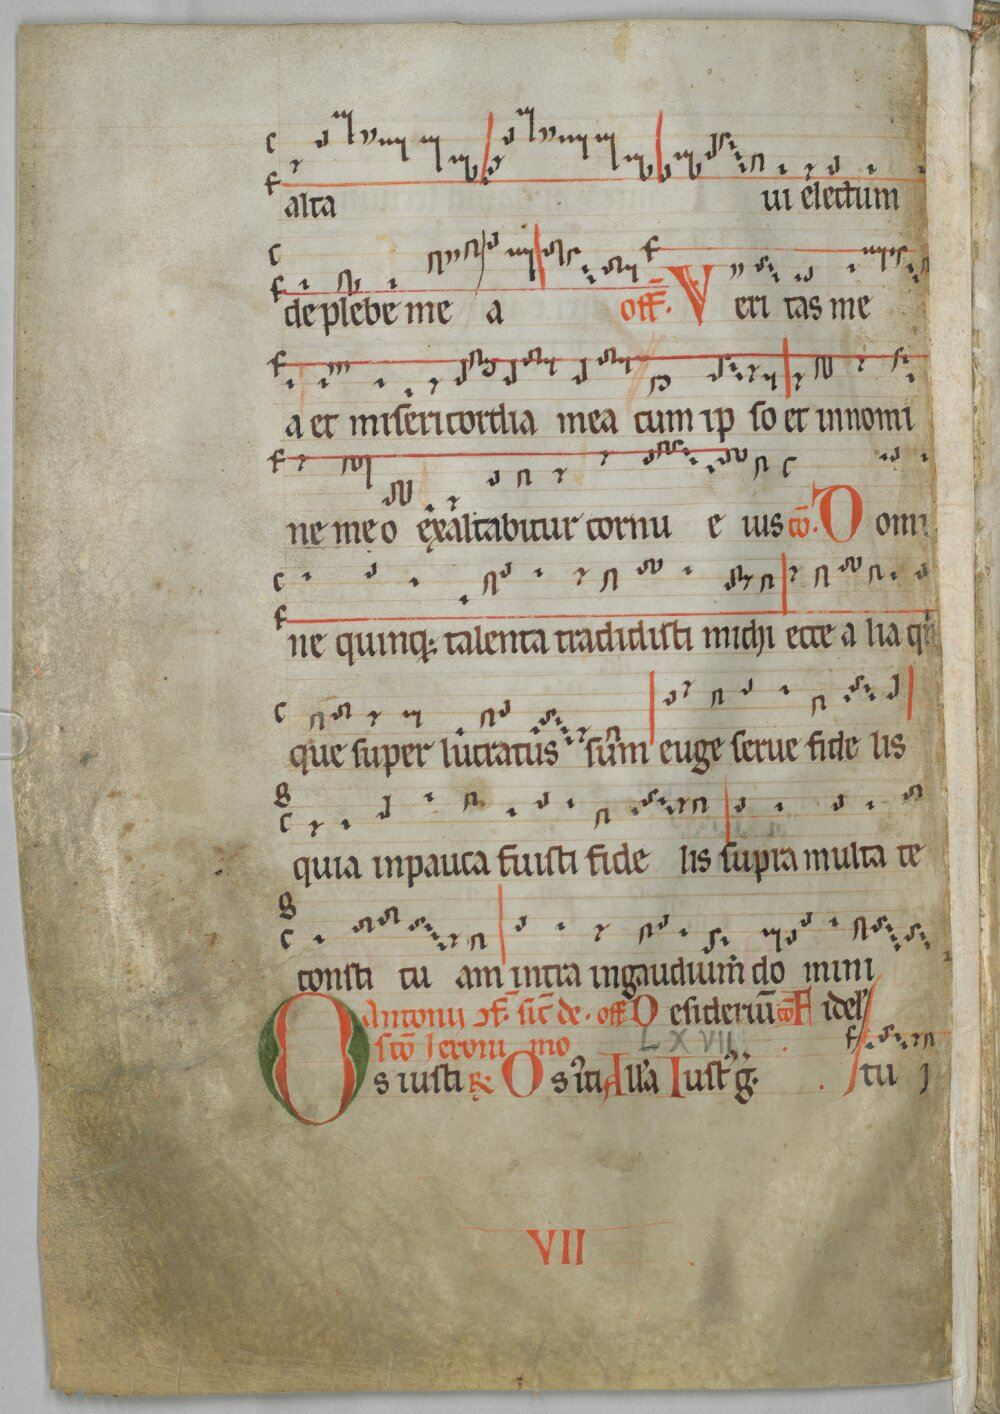 alta ui electum
de plebe me a off̄. Veri tas me
a et misericordia mea cum ip so et in nomi
ne me o exaltabitur cornu e ius cō. Domi
ne quinq; talenta tradidisti michi ecce a lia qn
que super lucratus sum euge serue fide lis
quia in pauca fuisti fide lis supra multa te
consti tu am intra in gaudium do mini
Antonij ſic̄ de. off̄ Desideriū cō Fidel'
scō Jeroni mo LXVII
Os iusti R Os iti All'a Iust' g. tu j
VII